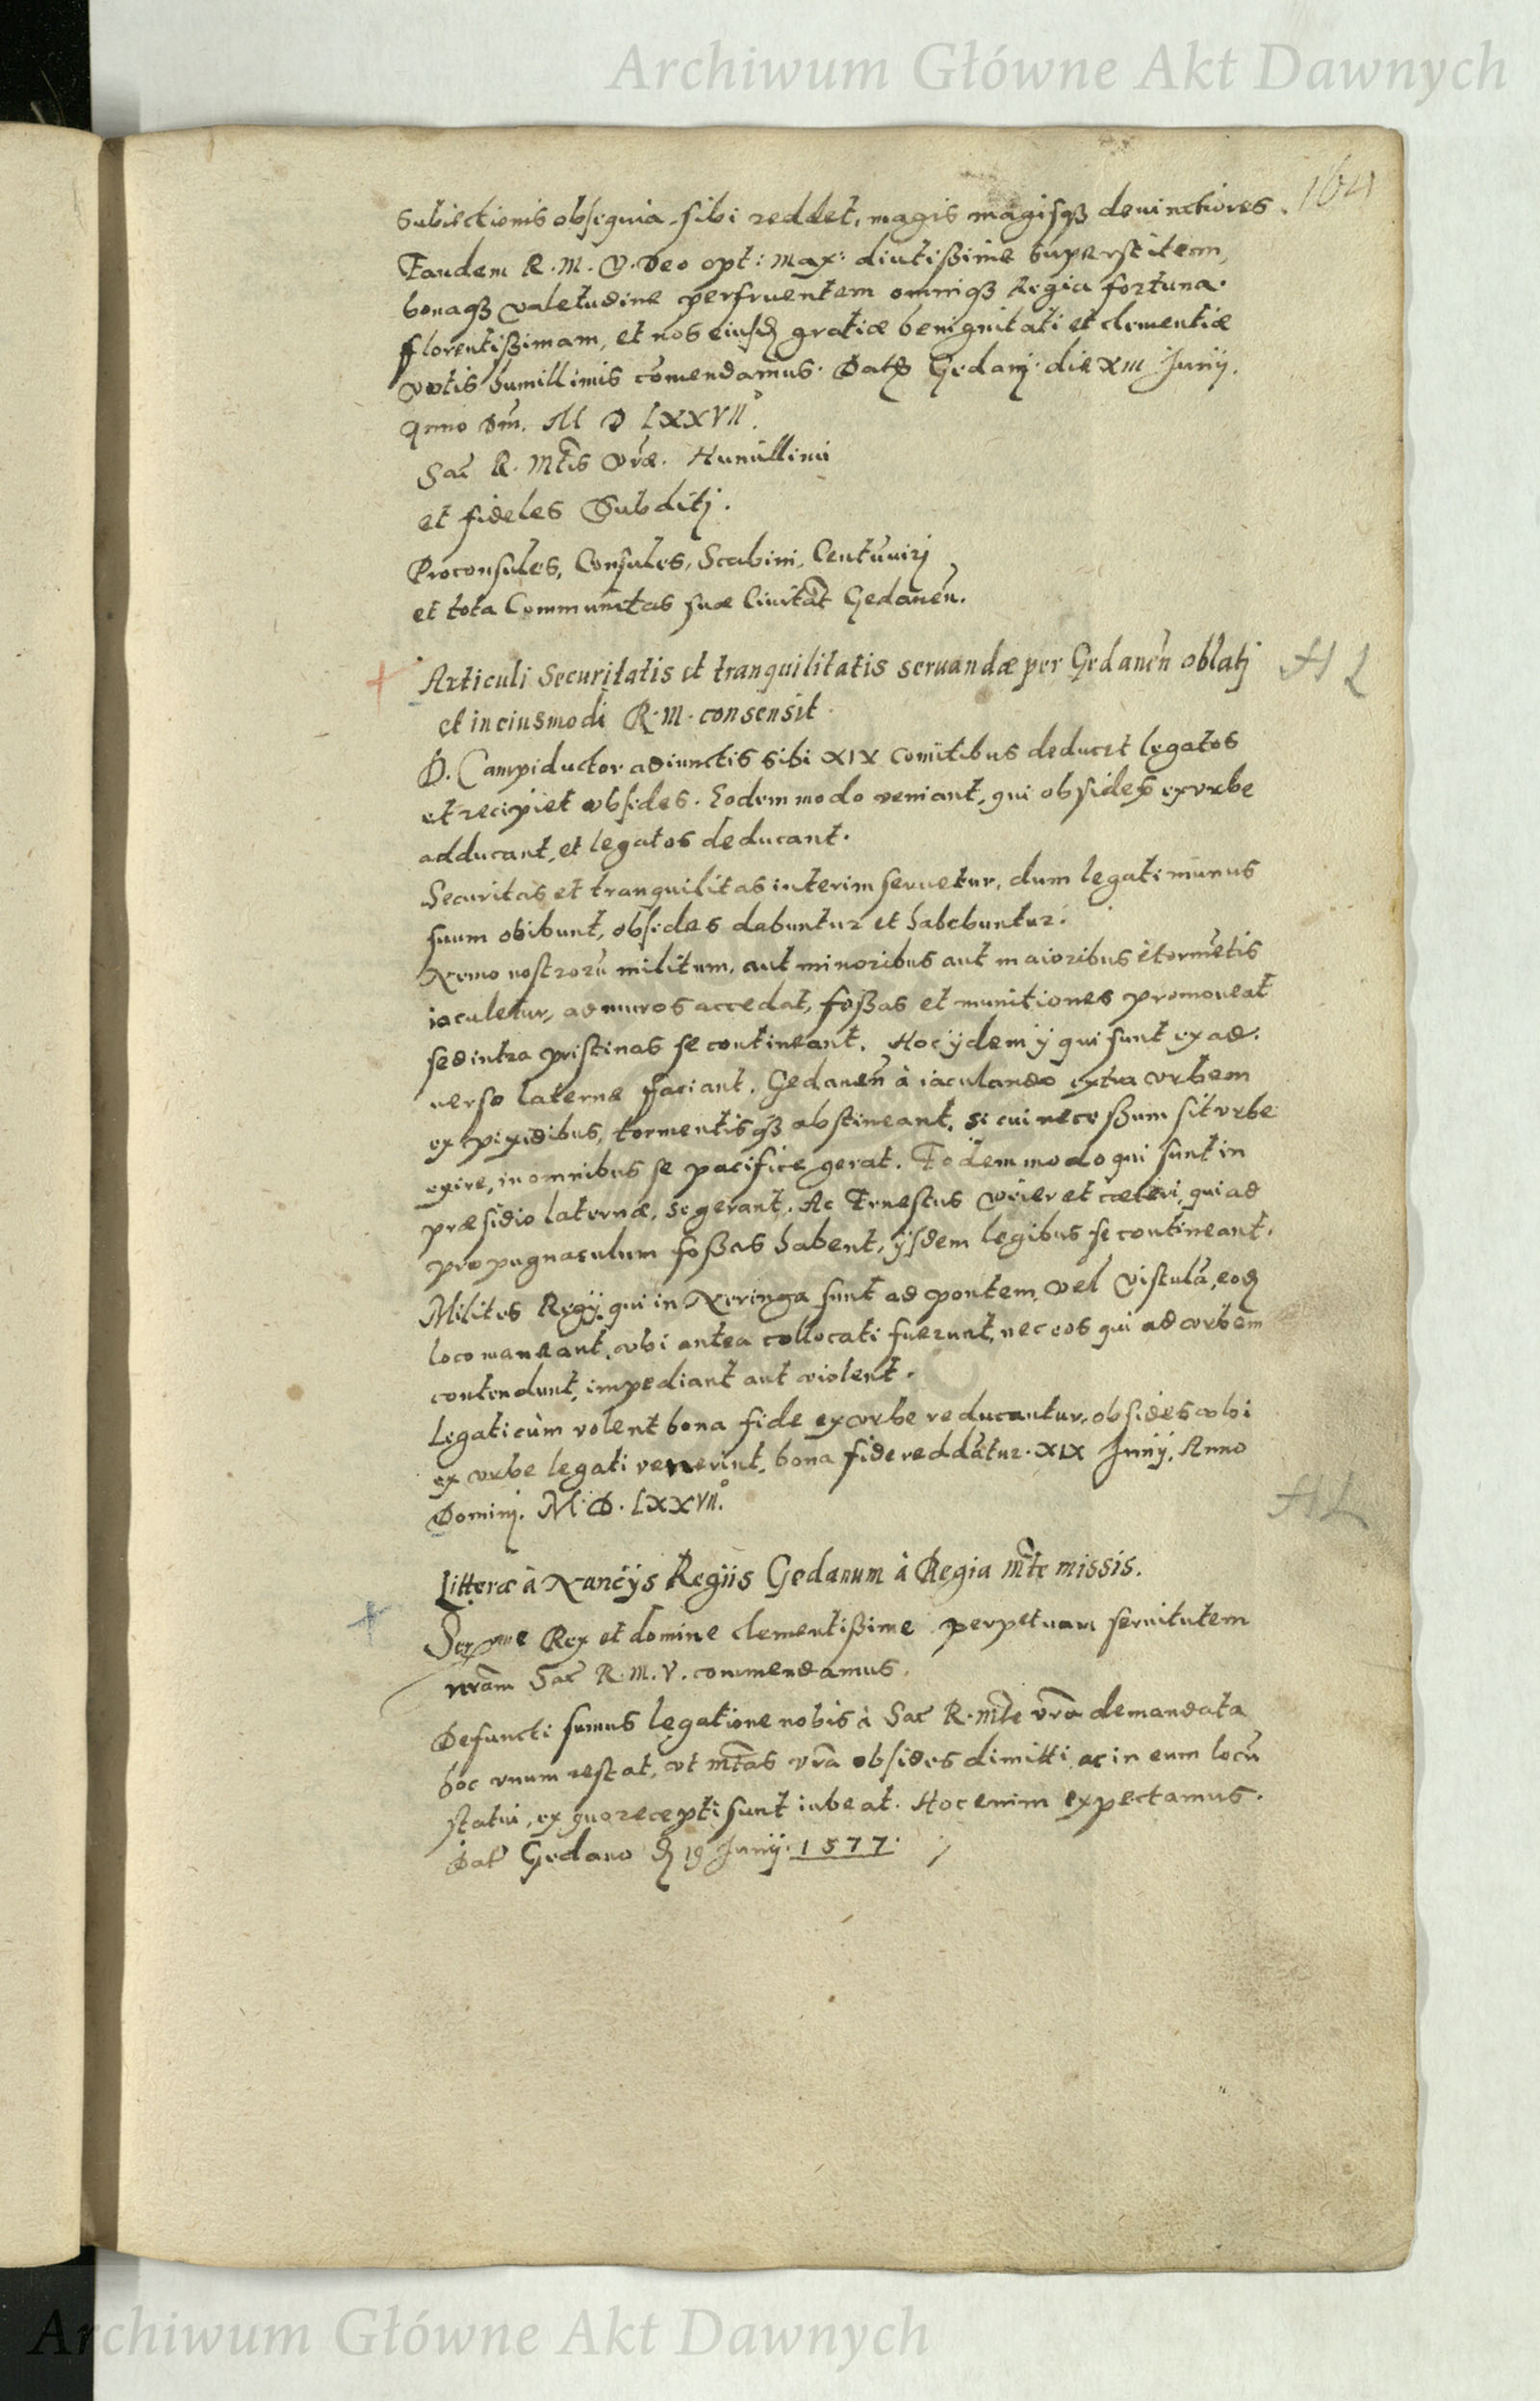 Archiwum Główne Akt Dawnych
164
Subiectionis obsequia sibi reddet, magis magisqꝫ deuinctiores.
Tandem R. M. V. Deo opt: Max: diutißime superstitem,
bonaqꝫ valetudine perfruentem omniqꝫ Regia fortuna
florentißimam, et nos eiusd gratiæ benignitati et clementiæ
votis humillimis cōmendamus. Dat Gedanj die XIII Junij.
Anno Dni. M D LXXVII°.
Sac R. Mtis Vræ. Humillimi
et fideles Subditj.
Proconsules, Consules, Scabini, Centūuirj
et tota Communitas suæ Ciuitat Gedanen.
Articuli Securitatis et tranquilitatis seruandæ per Gedanen oblatj
AL
et in eiusmodi R. M. consensit.
D. Campiductor adiunctis sibi XIX Comitibus deducet legatos
et recipiet obsides. Eodem modo veniant, qui obsides ex vrbe
adducant, et legatos deducant.
Securitas et tranquilitas interim seruetur, dum legati munus
suum obibunt, obsides dabuntur et habebuntur.
Nemo nostrorū militum, aut minoribus aut maioribus ètormētis
iaculetur, ad muros accedat, foßas et munitiones promoueat
sed intra pristinas se contineant. Hoc ÿdem ÿ qui sunt ex ad.
uerso laternæ faciant. Gedanen à iaculando extra vrbem
ex pixidibus, tormentisqꝫ abstineant. si cui neceßum sit vrbe
exire, in omnibus se pacifice gerat. Eodem modo qui sunt in
præsidio laternæ, se gerant. Ac Ernestus Veier et cæteri, qui ad
propugnaculum foßas habent, ÿsdem legibus se contineant.
Milites Regÿ, qui in Neringa sunt ad pontem, vel Vistulā, eod
loco maneant, vbi antea collocati fuerunt, nec eos qui ad vrbem
contendunt, impediant aut violent.
Legati cùm volent bona fide ex vrbe reducantur, obsides vbi
ex vrbe legati venerint, bona fide reddātur. XIX Junÿ. Anno
Dominj. M. D. LXXVII°.
AL
Litteræ à Nuncÿs Regiis Gedanum à Regia Mte missis.
Serme Rex et domine clementißime perpetuam seruitutem
nram Sac R. M. V. commendamus.
Defuncti sumus legatione nobis à Sac R. Mte vra demandata
hoc vnum restat, vt Mtas vra obsides dimitti, ac in eum locū
statui, ex quo recepti sunt iubeat. Hoc enim expectamus.
Dat Gedano d 19 Junÿ. 1577.
Archiwum Główne Akt Dawnych